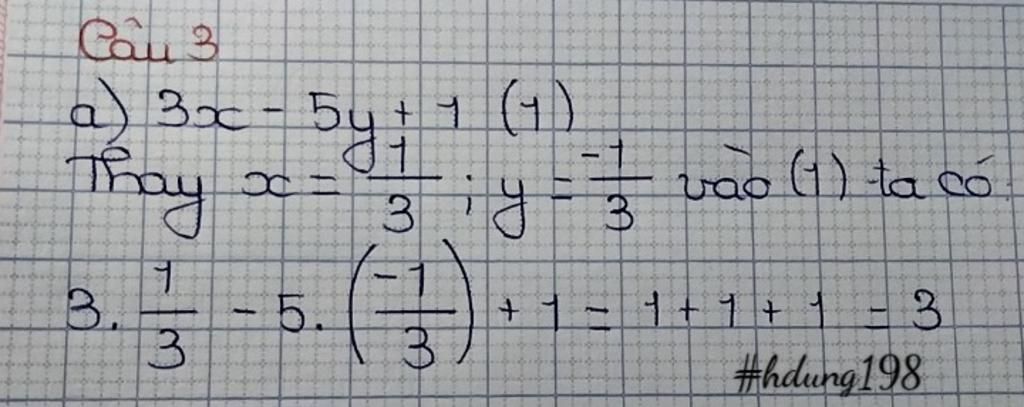 Câu 3
a) 3x - 5y + 1 (1)
Thay x = 1/3 ; y = -1/3 vào (1) ta có
3. 1/3 - 5. (-1/3) + 1 = 1 + 1 + 1 = 3
#hdung198